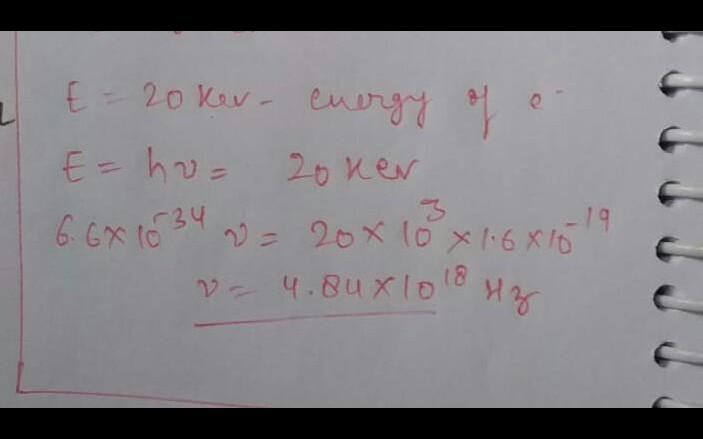 E = 20 Kev - energy of e⁻
E = hν = 20 Kev
6.6×10⁻³⁴ ν = 20×10³×1.6×10⁻¹⁹
ν = 4.84×10¹⁸ Hz